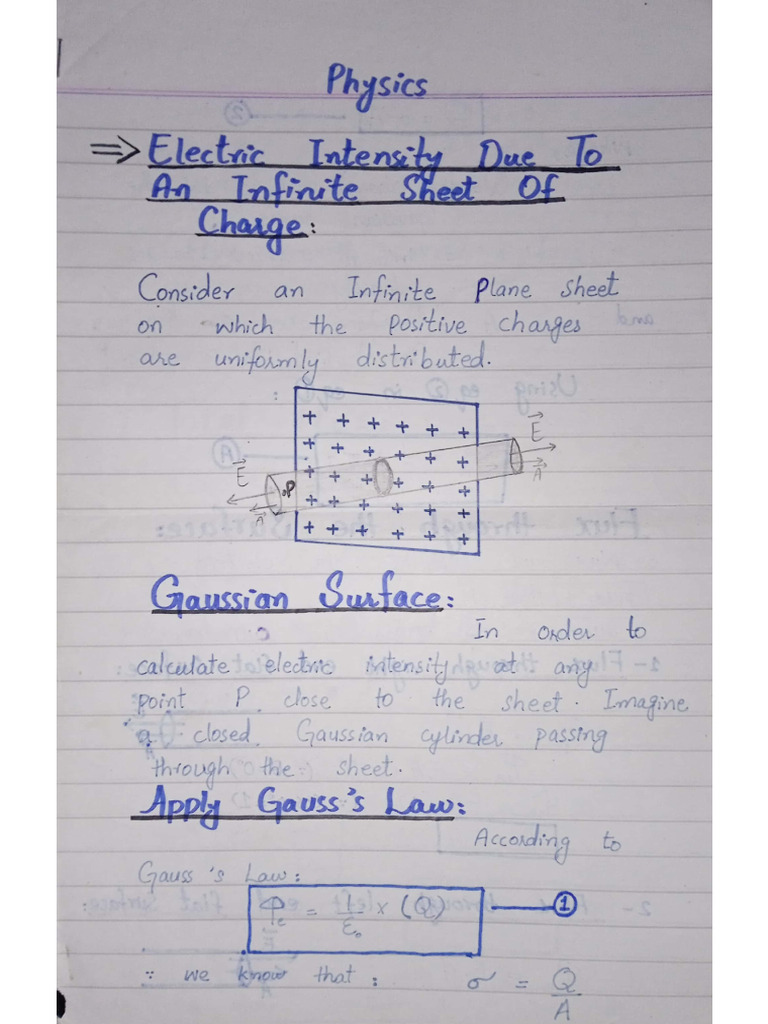 Physics
⇒ Electric Intensity Due To
An Infinite Sheet Of
Charge:
Consider an Infinite Plane sheet
on which the positive charges
are uniformly distributed.
E⃗
E⃗
P
A⃗
A⃗
Gaussian Surface:
In order to
calculate electric intensity at any
point P close to the sheet. Imagine
a closed Gaussian cylinder passing
through the sheet.
Apply Gauss's Law:
According to
Gauss's Law:
φe = 1/ε₀ × (Q) — ①
∵ we know that : σ = Q/A